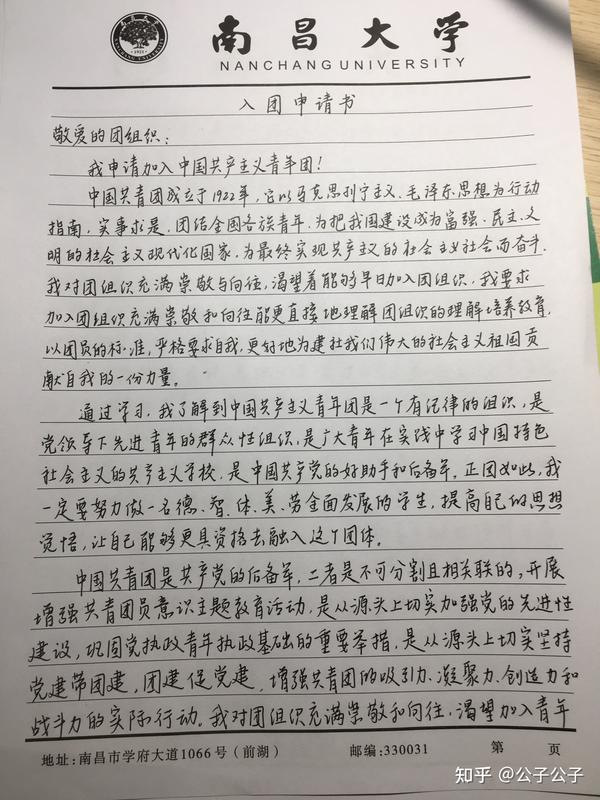 南昌大学
NANCHANG UNIVERSITY
1921
入团申请书
敬爱的团组织：
我申请加入中国共产主义青年团！
中国共青团成立于1922年，它以马克思列宁主义、毛泽东思想为行动
指南，实事求是，团结全国各族青年，为把我国建设成为富强、民主、文
明的社会主义现代化国家，为最终实现共产主义的社会主义社会而奋斗。
我对团组织充满崇敬与向往，渴望着能够早日加入团组织，我要求
加入团组织充满崇敬和向往能更直接地理解团组织的理解培养教育，
以团员的标准，严格要求自我，更好地为建社我们伟大的社会主义祖国贡
献自我的一份力量。
通过学习，我了解到中国共产主义青年团是一个有纪律的组织，是
党领导下先进青年的群众性组织，是广大青年在实践中学习中国特色
社会主义的共产主义学校，是中国共产党的好助手和后备军。正因如此，我
一定要努力做一名德、智、体、美、劳全面发展的学生，提高自己的思想
觉悟，让自己能够更具资格去融入这个团体。
中国共青团是共产党的后备军，二者是不可分割且相关联的，开展
增强共青团员意识主题教育活动，是从源头上切实加强党的先进性
建设，巩固党执政青年执政基础的重要举措，是从源头上切实坚持
党建带团建，团建促党建，增强共青团的吸引力、凝聚力、创造力和
战斗力的实际行动。我对团组织充满崇敬和向往，渴望加入青年
地址：南昌市学府大道1066号（前湖） 邮编：330031 第 页
知乎 @公子公子